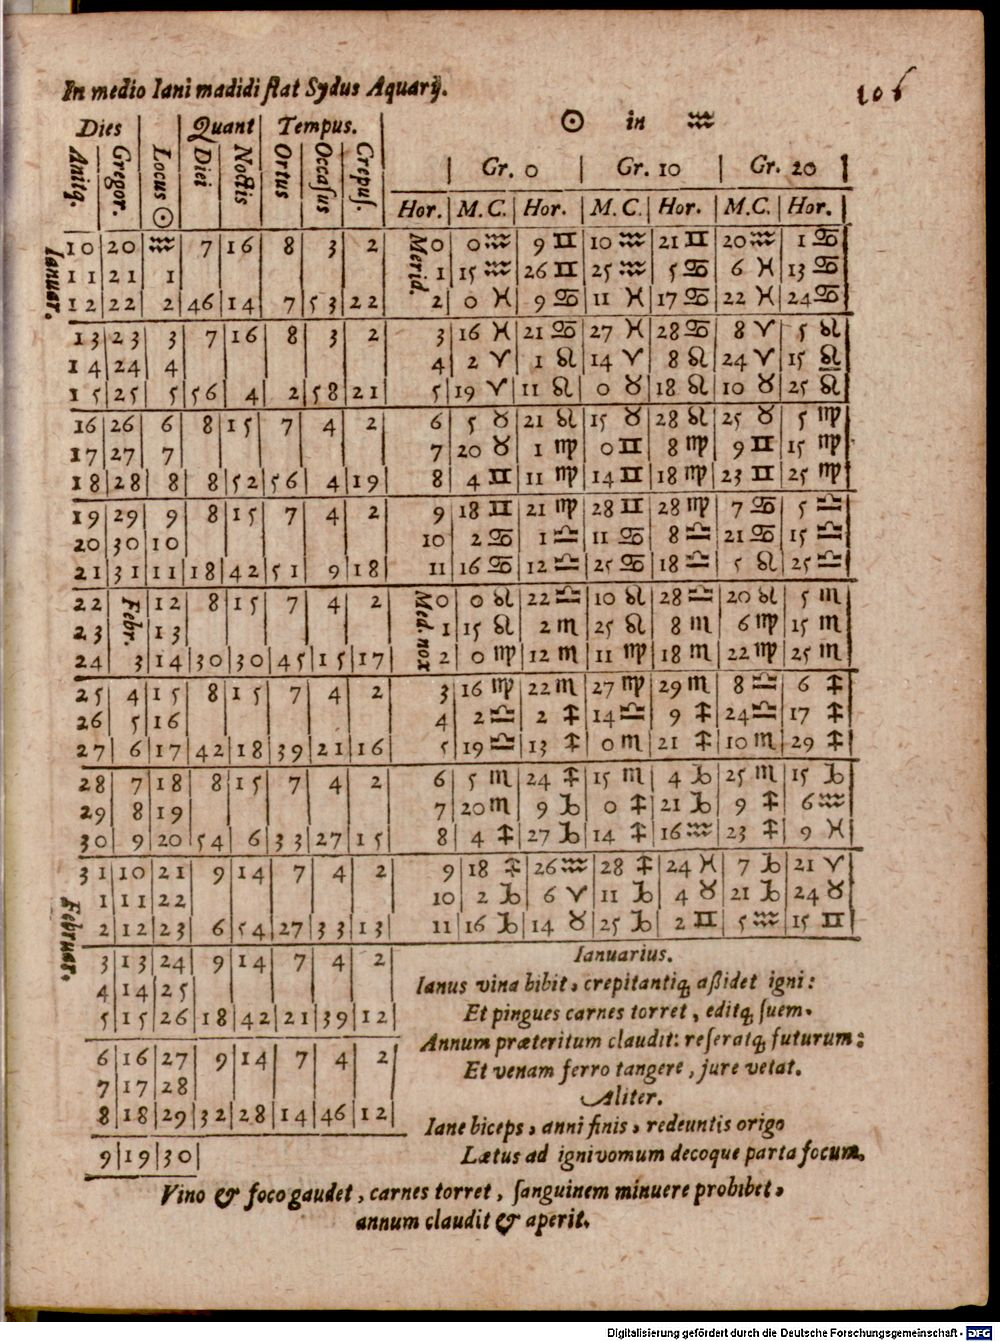 In medio Iani madidi stat Sydus Aquarij.
106
☉ in ♒
Dies | | Quant | Tempus.
Antiq. | Gregor. | Locus ☉ | Diei | Noctis | Ortus | Occasus | Crepus.
Ianuar.
10 | 20 | ♒ | 7 | 16 | 8 | 3 | 2
11 | 21 | 1
12 | 22 | 2 | 46 | 14 | 7 | 53 | 22
13 | 23 | 3 | 7 | 16 | 8 | 3 | 2
14 | 24 | 4
15 | 25 | 5 | 56 | 4 | 2 | 58 | 21
16 | 26 | 6 | 8 | 15 | 7 | 4 | 2
17 | 27 | 7
18 | 28 | 8 | 8 | 52 | 56 | 4 | 19
19 | 29 | 9 | 8 | 15 | 7 | 4 | 2
20 | 30 | 10
21 | 31 | 11 | 18 | 42 | 51 | 9 | 18
Febr.
22 | | 12 | 8 | 15 | 7 | 4 | 2
23 | | 13
24 | 3 | 14 | 30 | 30 | 45 | 15 | 17
25 | 4 | 15 | 8 | 15 | 7 | 4 | 2
26 | 5 | 16
27 | 6 | 17 | 42 | 18 | 39 | 21 | 16
28 | 7 | 18 | 8 | 15 | 7 | 4 | 2
29 | 8 | 19
30 | 9 | 20 | 54 | 6 | 33 | 27 | 15
31 | 10 | 21 | 9 | 14 | 7 | 4 | 2
Februar.
1 | 11 | 22
2 | 12 | 23 | 6 | 54 | 27 | 33 | 13
3 | 13 | 24 | 9 | 14 | 7 | 4 | 2
4 | 14 | 25
5 | 15 | 26 | 18 | 42 | 21 | 39 | 12
6 | 16 | 27 | 9 | 14 | 7 | 4 | 2
7 | 17 | 28
8 | 18 | 29 | 32 | 28 | 14 | 46 | 12
9 | 19 | 30
| Gr. 0 | Gr. 10 | Gr. 20
Hor. | M.C. | Hor. | M.C. | Hor. | M.C. | Hor.
Merid.
0 | 0 ♒ | 9 ♊ | 10 ♒ | 21 ♊ | 20 ♒ | 1 ♋
1 | 15 ♒ | 26 ♊ | 25 ♒ | 5 ♋ | 6 ♓ | 13 ♋
2 | 0 ♓ | 9 ♋ | 11 ♓ | 17 ♋ | 22 ♓ | 24 ♋
3 | 16 ♓ | 21 ♋ | 27 ♓ | 28 ♋ | 8 ♈ | 5 ♌
4 | 2 ♈ | 1 ♌ | 14 ♈ | 8 ♌ | 24 ♈ | 15 ♌
5 | 19 ♈ | 11 ♌ | 0 ♉ | 18 ♌ | 10 ♉ | 25 ♌
6 | 5 ♉ | 21 ♌ | 15 ♉ | 28 ♌ | 25 ♉ | 5 ♍
7 | 20 ♉ | 1 ♍ | 0 ♊ | 8 ♍ | 9 ♊ | 15 ♍
8 | 4 ♊ | 11 ♍ | 14 ♊ | 18 ♍ | 23 ♊ | 25 ♍
9 | 18 ♊ | 21 ♍ | 28 ♊ | 28 ♍ | 7 ♋ | 5 ♎
10 | 2 ♋ | 1 ♎ | 11 ♋ | 8 ♎ | 21 ♋ | 15 ♎
11 | 16 ♋ | 12 ♎ | 25 ♋ | 18 ♎ | 5 ♌ | 25 ♎
Med. nox
0 | 0 ♌ | 22 ♎ | 10 ♌ | 28 ♎ | 20 ♌ | 5 ♏
1 | 15 ♌ | 2 ♏ | 25 ♌ | 8 ♏ | 6 ♍ | 15 ♏
2 | 0 ♍ | 12 ♏ | 11 ♍ | 18 ♏ | 22 ♍ | 25 ♏
3 | 16 ♍ | 22 ♏ | 27 ♍ | 29 ♏ | 8 ♎ | 6 ♐
4 | 2 ♎ | 2 ♐ | 14 ♎ | 9 ♐ | 24 ♎ | 17 ♐
5 | 19 ♎ | 13 ♐ | 0 ♏ | 21 ♐ | 10 ♏ | 29 ♐
6 | 5 ♏ | 24 ♐ | 15 ♏ | 4 ♑ | 25 ♏ | 15 ♑
7 | 20 ♏ | 9 ♑ | 0 ♐ | 21 ♑ | 9 ♐ | 6 ♒
8 | 4 ♐ | 27 ♑ | 14 ♐ | 16 ♒ | 23 ♐ | 9 ♓
9 | 18 ♐ | 26 ♒ | 28 ♐ | 24 ♓ | 7 ♑ | 21 ♈
10 | 2 ♑ | 6 ♈ | 11 ♑ | 4 ♉ | 21 ♑ | 24 ♉
11 | 16 ♑ | 14 ♉ | 25 ♑ | 2 ♊ | 5 ♒ | 15 ♊
Ianuarius.
Ianus vina bibit, crepitantiq; aßidet igni:
Et pingues carnes torret, editq; suem.
Annum præteritum claudit: reseratq; futurum:
Et venam ferro tangere, jure vetat.
Aliter.
Iane biceps, anni finis, redeuntis origo
Lætus ad ignivomum decoque parta focum.
Vino & foco gaudet, carnes torret, sanguinem minuere prohibet,
annum claudit & aperit.
Digitalisierung gefördert durch die Deutsche Forschungsgemeinschaft - DFG